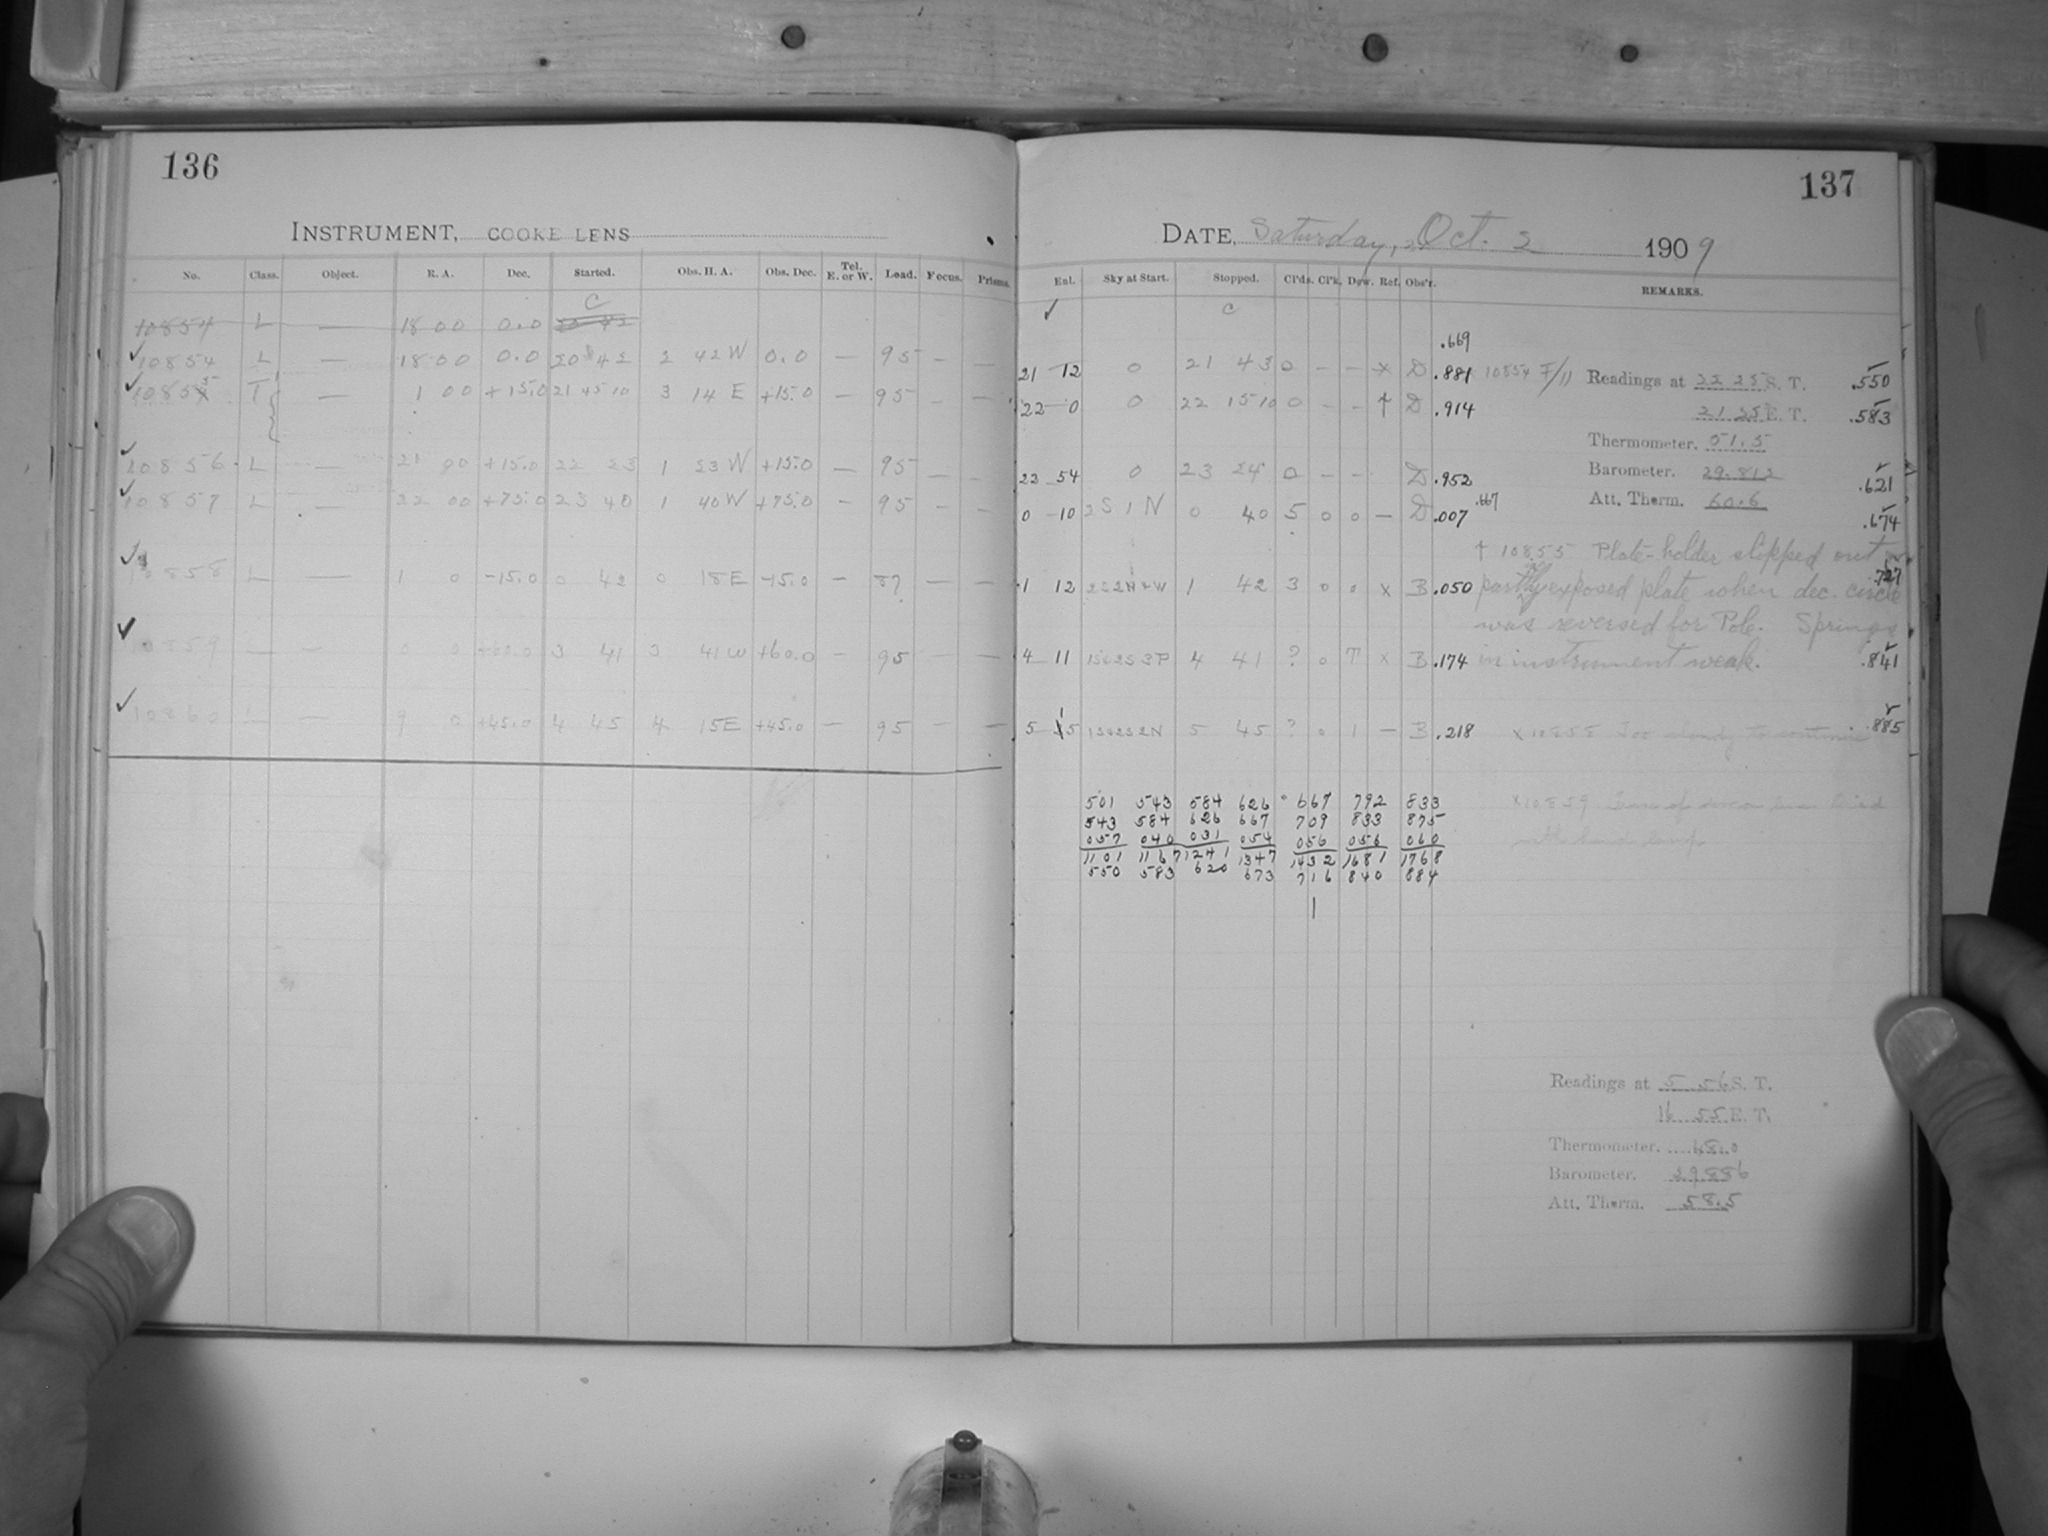 136
INSTRUMENT, COOKE LENS
No. Class. Object. R. A. Dec. Started. Obs. H. A. Obs. Dec. Tel. E. or W. Load. Focus. Prisms.
C
10854 L — 18 00 0.0
10854 L — 18 00 0.0 20 42 2 42 W 0.0 — 95 — —
10855 T — 1 00 +15.0 21 45 10 3 14 E +15.0 — 95 — —
10856 L — 21 00 +15.0 22 23 1 23 W +15.0 — 95 — —
10857 L — 22 00 +75.0 23 40 1 40 W +75.0 — 95 — —
10858 L — 1 0 -15.0 0 42 0 18 E -15.0 — 87 — —
10859 — — 0 0 +60.0 3 41 3 41 W +60.0 — 95 — —
10860 L — 9 0 +45.0 4 45 4 15 E +45.0 — 95 — —
137
DATE, Saturday, Oct. 2 1909
Exl. Sky at Start. Stopped. Cl'ds. Cl'k. Dew. Ref. Obs'r. REMARKS.
✓ C
.669
21 12 0 21 43 0 — — x D .881 10854 F/11
22 0 0 22 15 10 0 — — † D .914
22 54 0 23 24 0 — — D .952
0 10 2 S 1 N 0 40 5 0 0 — D .007 .667
1 12 1 42 3 0 0 x B .050
4 11 4 41 ? 0 T x B .174
5 15 5 45 ? 0 1 — B .218
Readings at 22 25 S. T. .550
21 25 E. T. .583
Thermometer. 51.5
Barometer. 29.812 .621
Att. Therm. 60.6 .674
† 10855 Plate-holder slipped out
partly exposed plate when dec. circle .727
was reversed for Pole. Springs
in instrument weak. .841
x 10858 Too cloudy to continue .885
x 10859
with hand lamp
501 543 584 626 667 792 833
543 584 626 667 709 833 875
057 040 031 054 056 056 060
1101 1167 1241 1347 1432 1681 1768
550 583 620 673 716 840 884
Readings at 5 56 S. T.
16 55 E. T.
Thermometer. 48.0
Barometer. 29.886
Att. Therm. 58.5